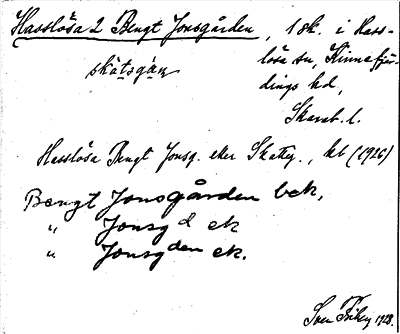 Hasslösa 2 Bengt Jonsgården, 1 sk. i Hass-
lösa sn, Kinnefjär-
dings hd,
Skarab. l.
skätsgáṇ
Hasslösa Bengt Jonsg. eller Skatteg., hd (1926)
Bengt Jonsgården bek,
" Jonsg d ek
" Jonsg den ek.
Sven Fribeg 1928.